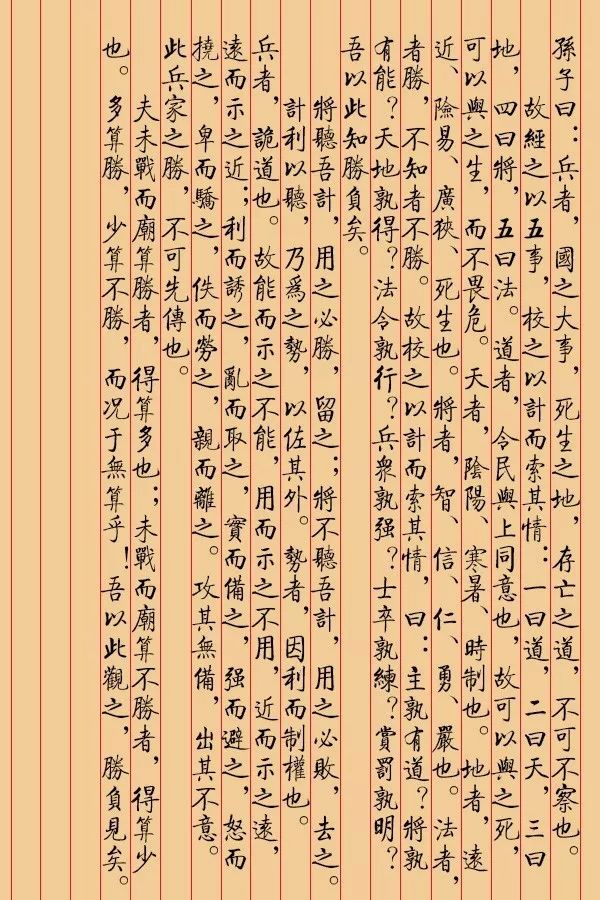 孫子曰：兵者，國之大事，死生之地，存亡之道，不可不察也。
故經之以五事，校之以計而索其情：一曰道，二曰天，三曰
地，四曰將，五曰法。道者，令民與上同意也，故可以與之死，
可以與之生，而不畏危。天者，陰陽、寒暑、時制也。地者，遠
近、險易、廣狹、死生也。將者，智、信、仁、勇、嚴也。法者，
者勝，不知者不勝。故校之以計而索其情，曰：主孰有道？將孰
有能？天地孰得？法令孰行？兵衆孰强？士卒孰練？賞罰孰明？
吾以此知勝負矣。
將聽吾計，用之必勝，留之；將不聽吾計，用之必敗，去之。
計利以聽，乃爲之勢，以佐其外。勢者，因利而制權也。
兵者，詭道也。故能而示之不能，用而示之不用，近而示之遠，
遠而示之近；利而誘之，亂而取之，實而備之，强而避之，怒而
撓之，卑而驕之，佚而勞之，親而離之。攻其無備，出其不意。
此兵家之勝，不可先傳也。
夫未戰而廟算勝者，得算多也；未戰而廟算不勝者，得算少
也。多算勝，少算不勝，而况于無算乎！吾以此觀之，勝負見矣。